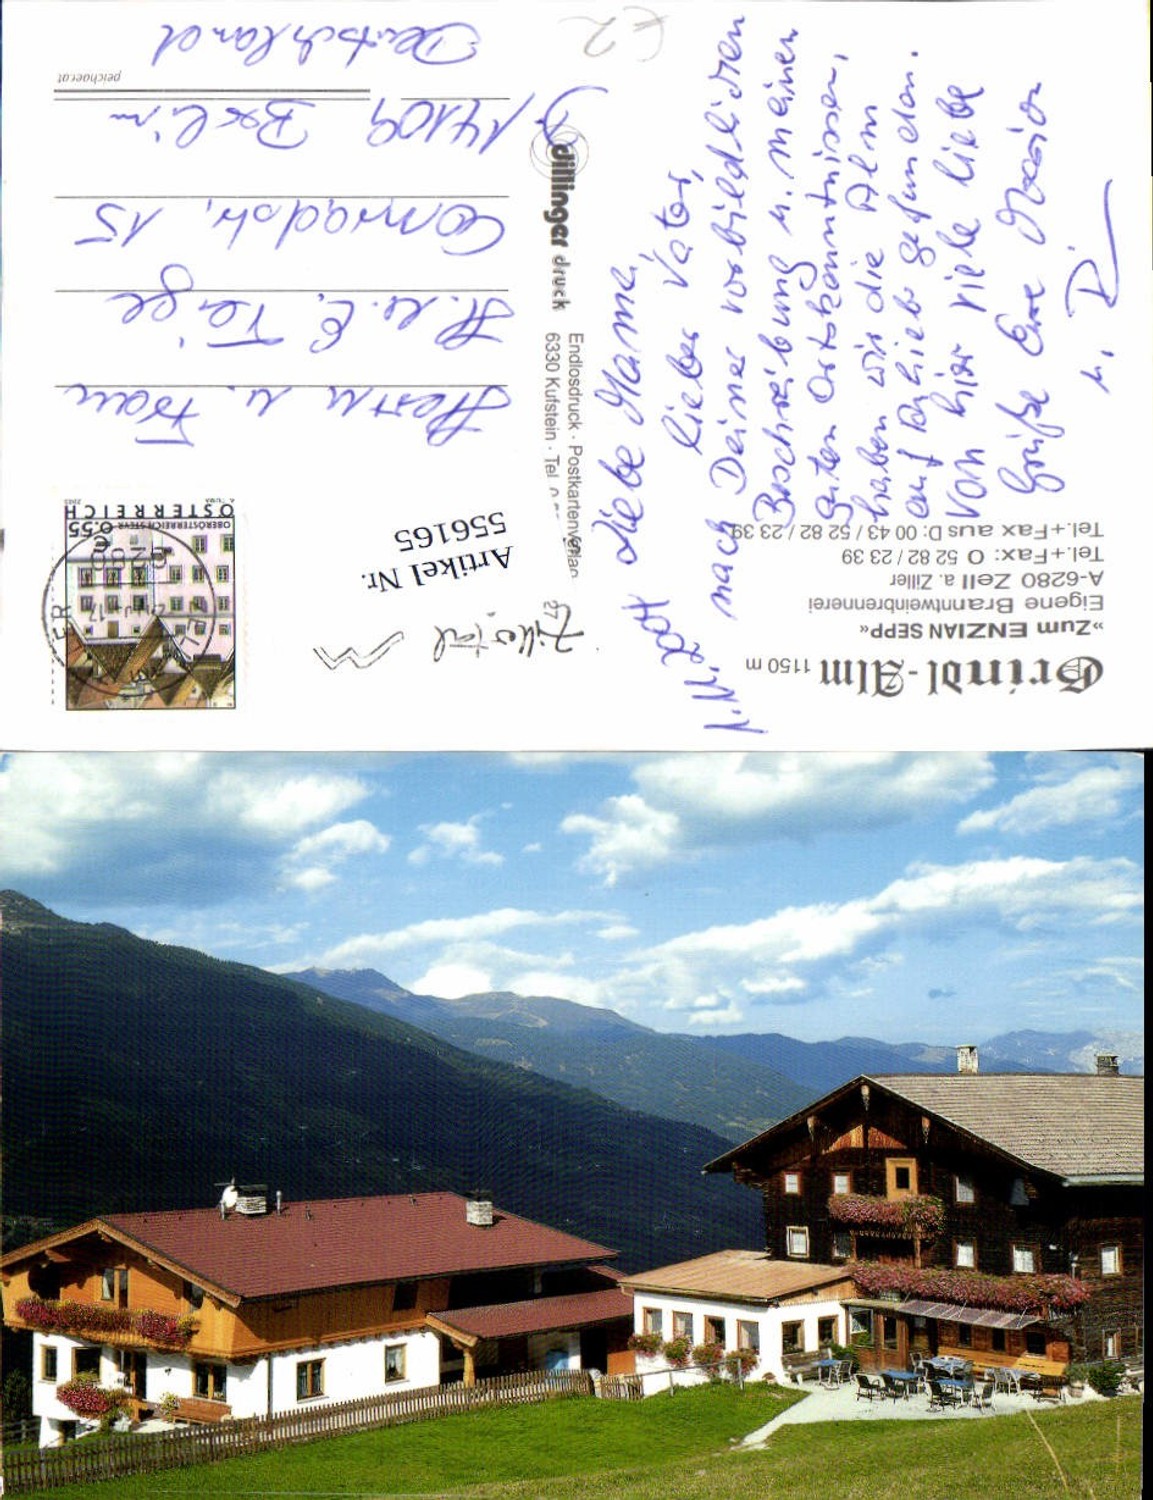 Grindl-Alm 1150 m
»Zum ENZIAN SEPP«
Eigene Branntweinbrennerei
A-6280 Zell a. Ziller
Tel.+Fax: 0 52 82 / 23 39
Tel.+Fax aus D: 00 43 / 52 82 / 23 39
1.11.2004
Liebe Mama,
lieber Vater,
nach Deiner vorbildlichen
Beschreibung u. meinen
guten Ortskenntnissen,
haben wir die Alm
auf Anhieb gefunden.
Von hier viele liebe
Grüße Eure Marion
u.
dillinger druck
Endlosdruck · Postkartenverlag
6330 Kufstein · Tel.
Zillertal
Artikel Nr.
556165
OBERÖSTERREICH STEYR
0.55
€
ÖSTERREICH
A. TUMA
2003
Herrn u. Frau
H. u. E.
Conradstr. 15
D/14109 Berlin
Deutschland
peichaer.at
€2